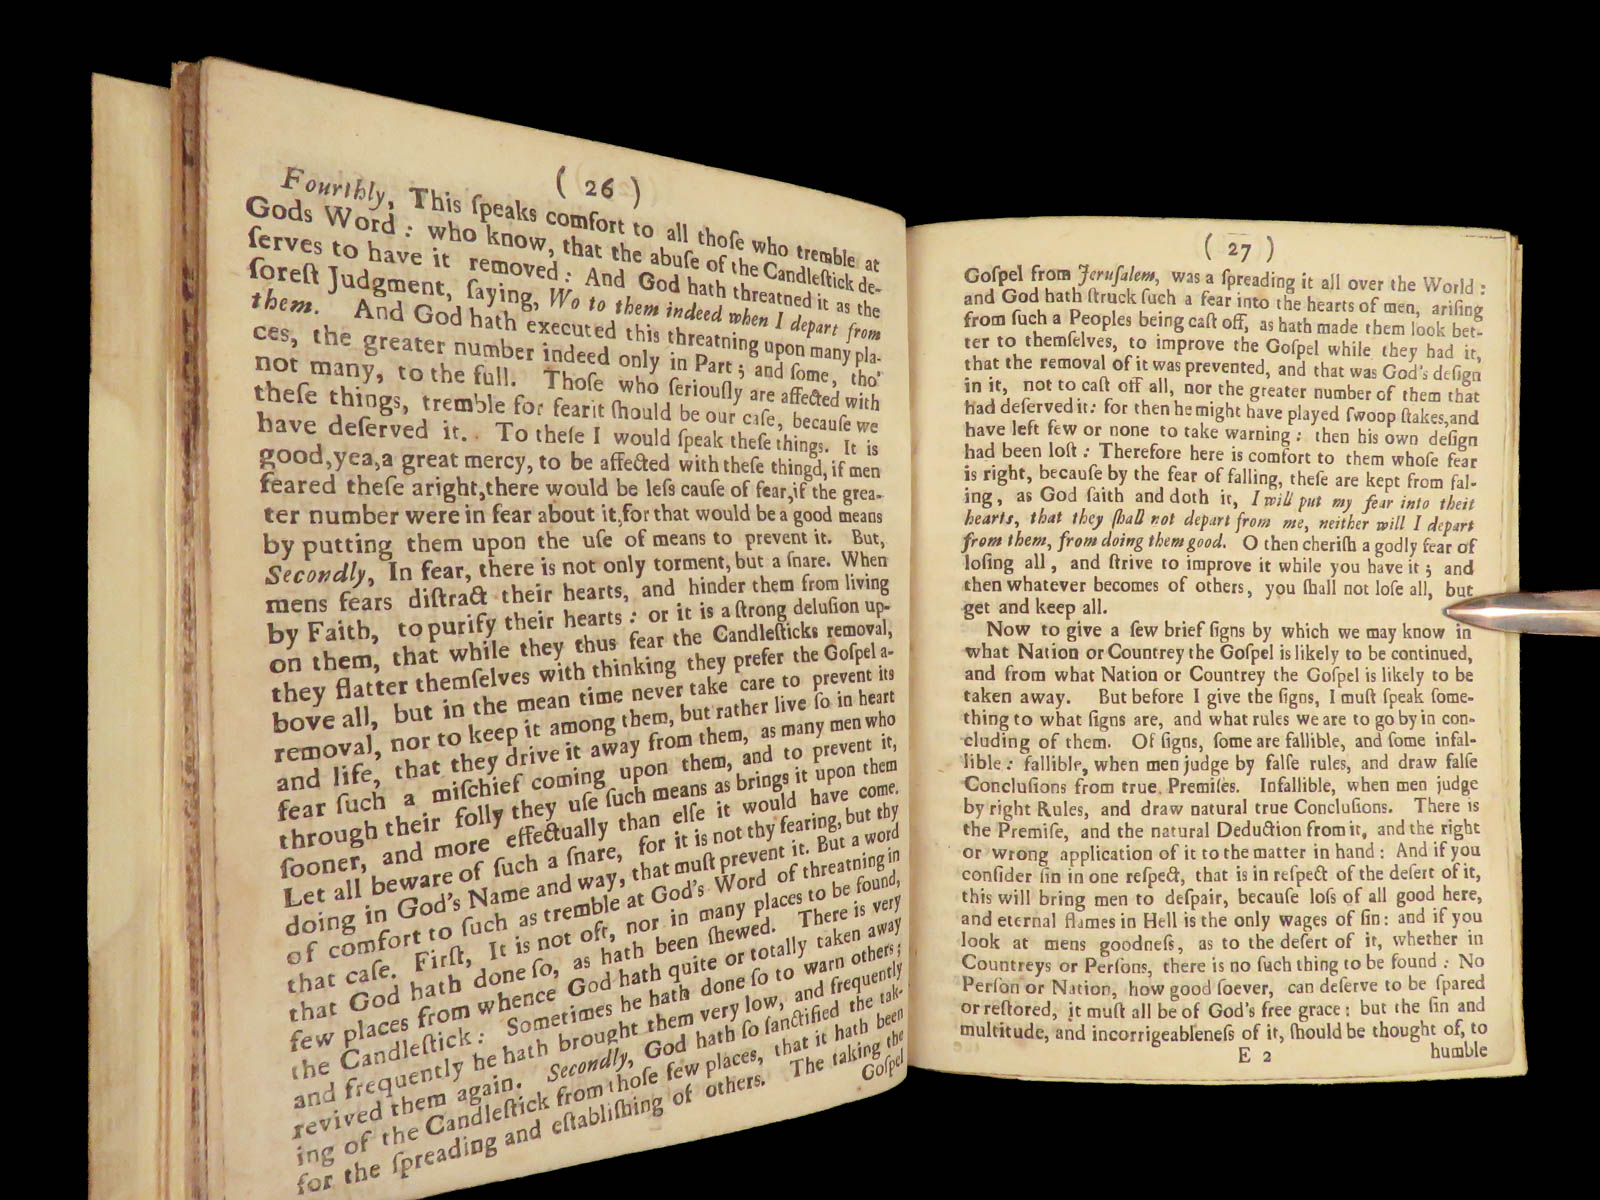 ( 26 )
Fourthly, This ſpeaks comfort to all thoſe who tremble at
Gods Word : who know, that the abuſe of the Candleſtick de-
ſerves to have it removed : And God hath threatned it as the
ſoreſt Judgment, ſaying, Wo to them indeed when I depart from
them. And God hath executed this threatning upon many pla-
ces, the greater number indeed only in Part ; and ſome, tho'
not many, to the full. Thoſe who ſeriouſly are affected with
theſe things, tremble for fear it ſhould be our caſe, becauſe we
have deſerved it. To theſe I would ſpeak theſe things. It is
good, yea, a great mercy, to be affected with theſe thingd, if men
feared theſe aright, there would be leſs cauſe of fear, if the grea-
ter number were in fear about it, for that would be a good means
by putting them upon the uſe of means to prevent it. But,
Secondly, In fear, there is not only torment, but a ſnare. When
mens fears diſtract their hearts, and hinder them from living
by Faith, to purify their hearts : or it is a ſtrong deluſion up-
on them, that while they thus fear the Candleſticks removal,
they flatter themſelves with thinking they prefer the Goſpel a-
bove all, but in the mean time never take care to prevent its
removal, nor to keep it among them, but rather live ſo in heart
and life, that they drive it away from them, as many men who
fear ſuch a miſchief coming upon them, and to prevent it,
through their folly they uſe ſuch means as brings it upon them
ſooner, and more effectually than elſe it would have come.
Let all beware of ſuch a ſnare, for it is not thy fearing, but thy
doing in God's Name and way, that muſt prevent it. But a word
of comfort to ſuch as tremble at God's Word of threatning in
that caſe. Firſt, It is not oft, nor in many places to be found,
that God hath done ſo, as hath been ſhewed. There is very
few places from whence God hath quite or totally taken away
the Candleſtick : Sometimes he hath done ſo to warn others ;
and frequently he hath brought them very low, and frequently
revived them again. Secondly, God hath ſo ſanctified the tak-
ing of the Candleſtick from thoſe few places, that it hath been
for the ſpreading and eſtabliſhing of others. The taking the
Goſpel
( 27 )
Goſpel from Jeruſalem, was a ſpreading it all over the World :
and God hath ſtruck ſuch a fear into the hearts of men, ariſing
from ſuch a Peoples being caſt off, as hath made them look bet-
ter to themſelves, to improve the Goſpel while they had it,
that the removal of it was prevented, and that was God's deſign
in it, not to caſt off all, nor the greater number of them that
had deſerved it: for then he might have played ſwoop ſtakes, and
have left few or none to take warning : then his own deſign
had been loſt : Therefore here is comfort to them whoſe fear
is right, becauſe by the fear of falling, theſe are kept from fal-
ing, as God ſaith and doth it, I will put my fear into theit
hearts, that they ſhall not depart from me, neither will I depart
from them, from doing them good. O then cheriſh a godly fear of
loſing all, and ſtrive to improve it while you have it ; and
then whatever becomes of others, you ſhall not loſe all, but
get and keep all.
Now to give a few brief ſigns by which we may know in
what Nation or Countrey the Goſpel is likely to be continued,
and from what Nation or Countrey the Goſpel is likely to be
taken away. But before I give the ſigns, I muſt ſpeak ſome-
thing to what ſigns are, and what rules we are to go by in con-
cluding of them. Of ſigns, ſome are fallible, and ſome infal-
lible : fallible, when men judge by falſe rules, and draw falſe
Concluſions from true Premiſes. Infallible, when men judge
by right Rules, and draw natural true Concluſions. There is
the Premiſe, and the natural Deduction from it, and the right
or wrong application of it to the matter in hand : And if you
conſider ſin in one reſpect, that is in reſpect of the deſert of it,
this will bring men to deſpair, becauſe loſs of all good here,
and eternal flames in Hell is the only wages of ſin : and if you
look at mens goodneſs, as to the deſert of it, whether in
Countreys or Perſons, there is no ſuch thing to be found : No
Perſon or Nation, how good ſoever, can deſerve to be ſpared
or reſtored, it muſt all be of God's free grace : but the ſin and
multitude, and incorrigeableneſs of it, ſhould be thought of, to
E 2 humble